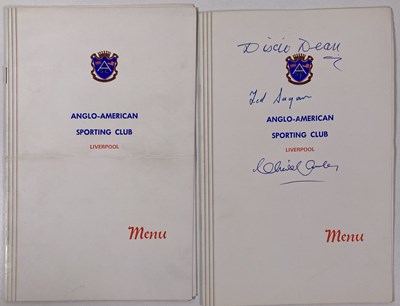 ANGLO-AMERICAN
SPORTING CLUB
LIVERPOOL
Menu
Dixie Dean
Ted Sagar
ANGLO-AMERICAN
SPORTING CLUB
LIVERPOOL
Menu